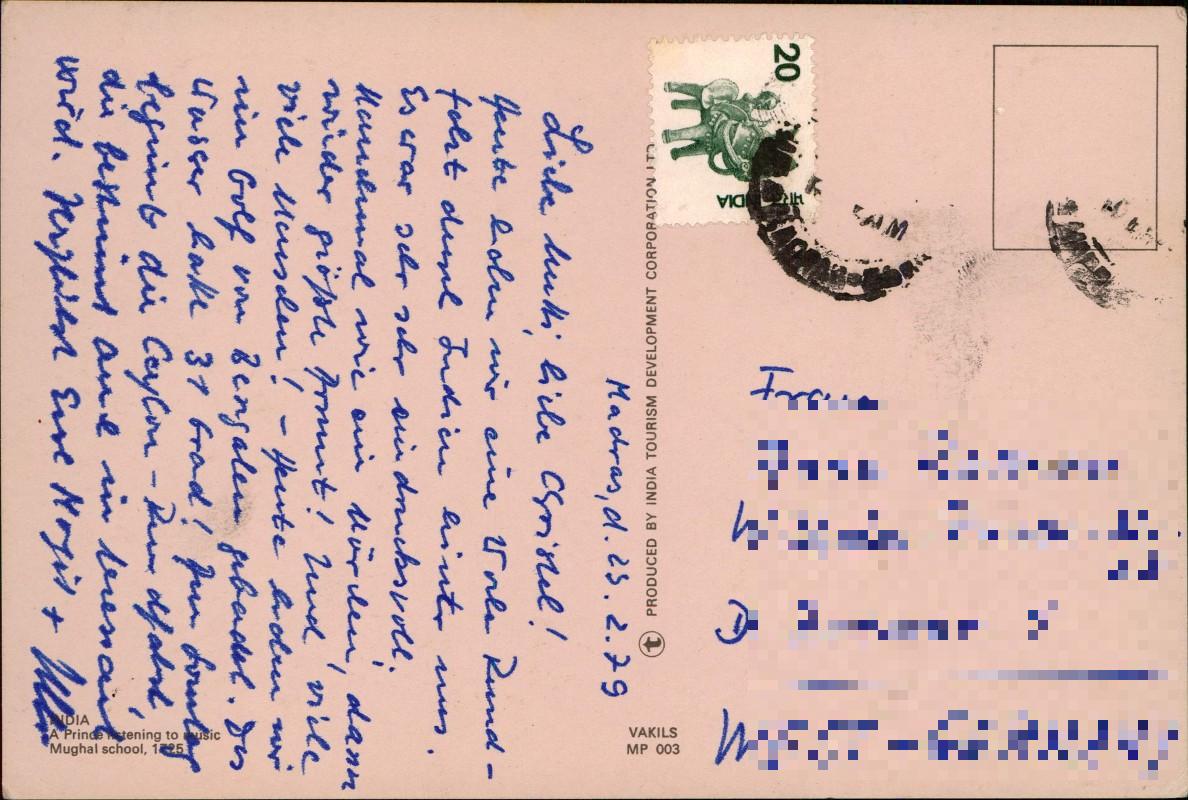 Madras, d. 25. 2. 79
Liebe Mutti, liebe Christel!
Heute haben wir eine Woche Rund-
fahrt durch Indien hinter uns.
Es war sehr sehr eindrucksvoll.
Manchmal wie ein Märchen, dann
wieder größte Armut! Und viele
viele Menschen! - Heute haben wir
im Golf von Bengalen gebadet. Das
Wasser hatte 31 Grad! Am Sonntag
beginnt die Ceylon - Rundfahrt,
die bestimmt auch interessant
wird. Herzlichst Eure Margit +
INDIA
A Prince listening to music
Mughal school, 1725
VAKILS
MP 003
PRODUCED BY INDIA TOURISM DEVELOPMENT CORPORATION LTD.
20
भारत INDIA
Frau
WEST-GERMANY